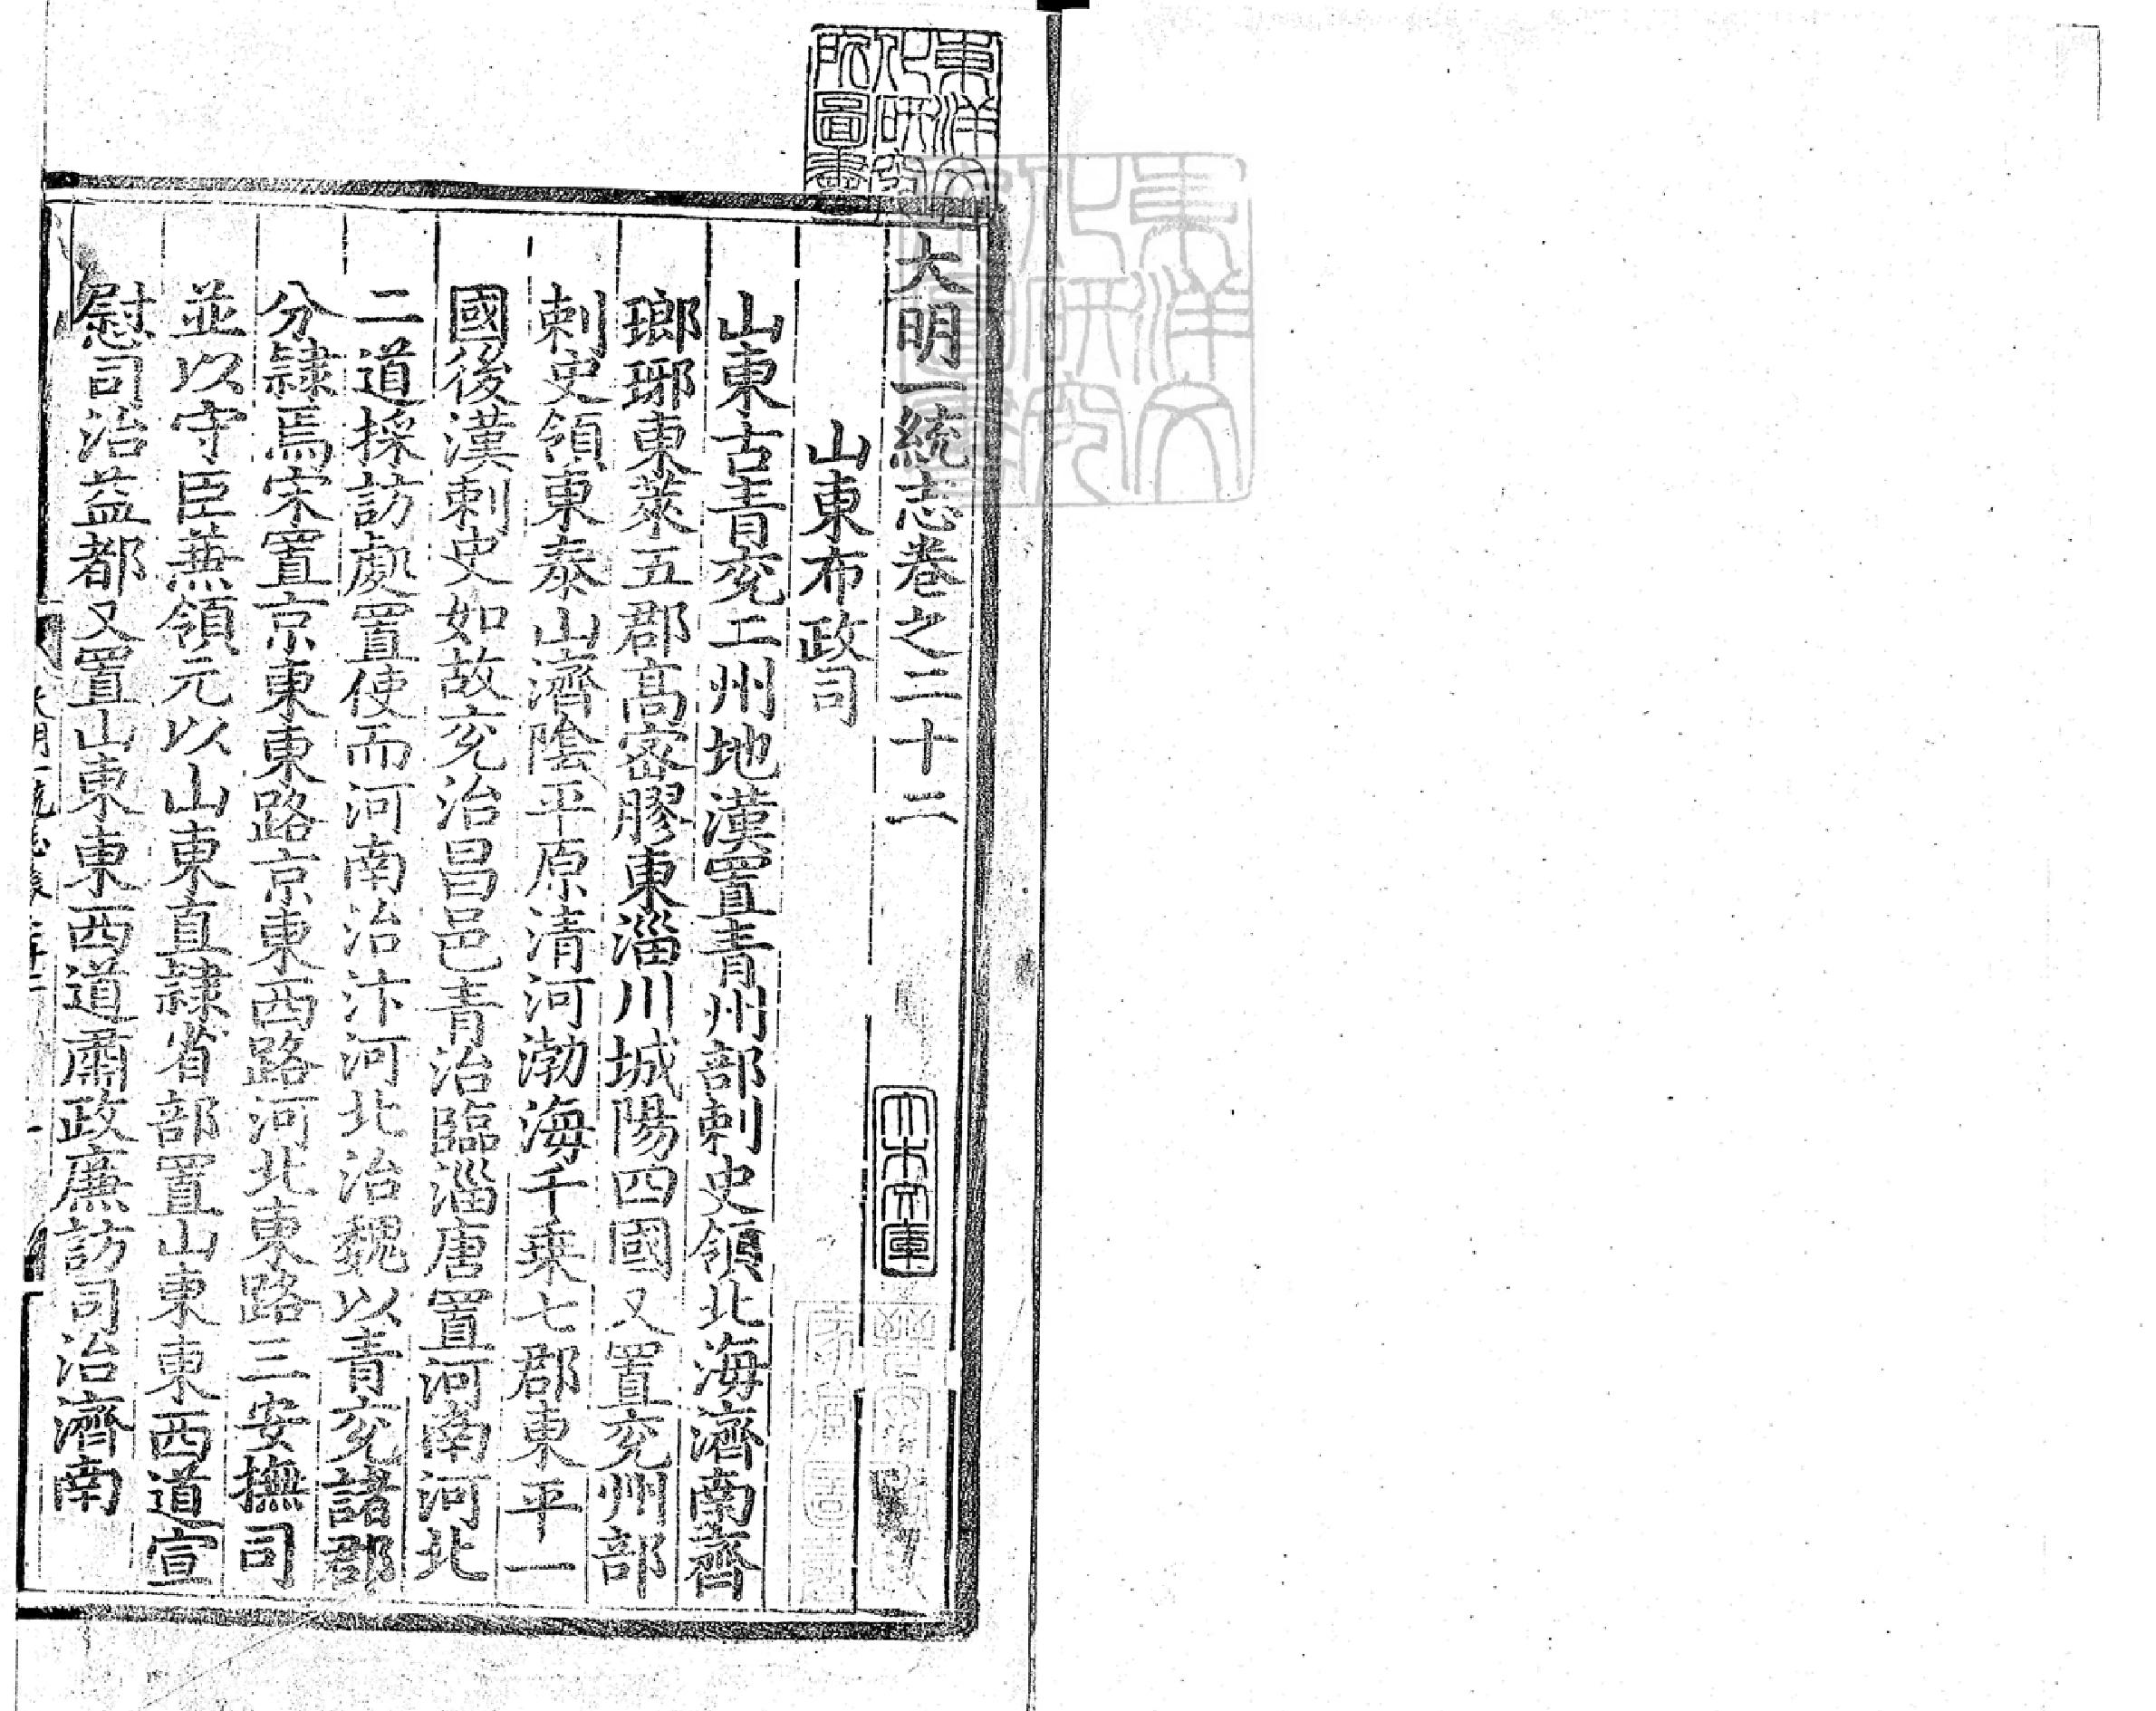 大明一統志卷之二十二
山東布政司
山東古青兗二州地漢置青州部刺史領北海濟南齊
瑯琊東萊五郡高密膠東淄川城陽四國又置兗州部
刺史領東泰山濟陰平原清河渤海千乗七郡東平一
國後漢刺史如故兗治昌邑青治臨淄唐置河南河北
二道採訪處置使而河南治汴河北治魏以青兗諸郡
分隷焉宋置京東東路京東西路河北東路三安撫司
並以守臣兼領元以山東直隷省部置山東東西道宣
慰司治益都又置山東東西道肅政廉訪司治濟南
東洋文化研究所圖書